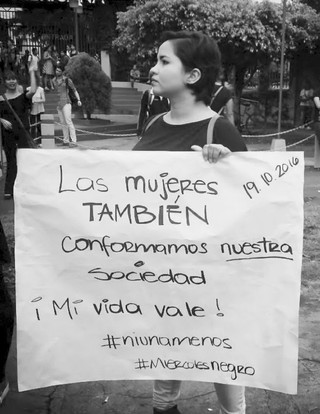 Las mujeres
19.10.2016
TAMBIÉN
conformamos nuestra
sociedad
¡Mi vida vale!
#niunamenos
#Miercolesnegro